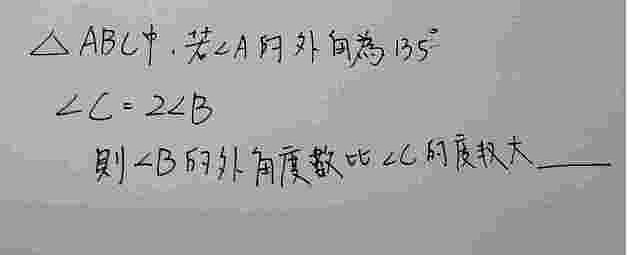 △ABC中,若∠A的外角為135°
∠C=2∠B
則∠B的外角度數比∠C的度数大____